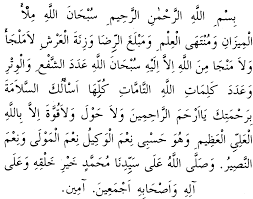 بِسْمِ اللَّهِ الرَّحْمٰنِ الرَّحِيمِ سُبْحَانَ اللَّهِ مِلْأَ
الْمِيزَانِ وَمُنْتَهَى الْعِلْمِ وَمَبْلَغَ الرِّضَا وَزِنَةَ الْعَرْشِ لَامَلْجَأَ
وَلَا مَنْجَا مِنَ اللَّهِ إِلَّا إِلَيْهِ سُبْحَانَ اللَّهِ عَدَدَ الشَّفْعِ وَالْوِتْرِ
وَعَدَدَ كَلِمَاتِ اللَّهِ التَّامَّاتِ كُلِّهَا أَسْأَلُكَ السَّلَامَةَ
بِرَحْمَتِكَ يَاأَرْحَمَ الرَّاحِمِينَ وَلَا حَوْلَ وَلَاقُوَّةَ إِلَّا بِاللَّهِ
الْعَلِيِّ الْعَظِيمِ وَهُوَ حَسْبِي نِعْمَ الْوَكِيلُ نِعْمَ الْمَوْلَى وَنِعْمَ
النَّصِيرُ. وَصَلَّى اللَّهُ عَلَى سَيِّدِنَا مُحَمَّدٍ خَيْرِ خَلْقِهِ وَعَلَى
آلِهِ وَأَصْحَابِهِ أَجْمَعِينَ. آمِين.